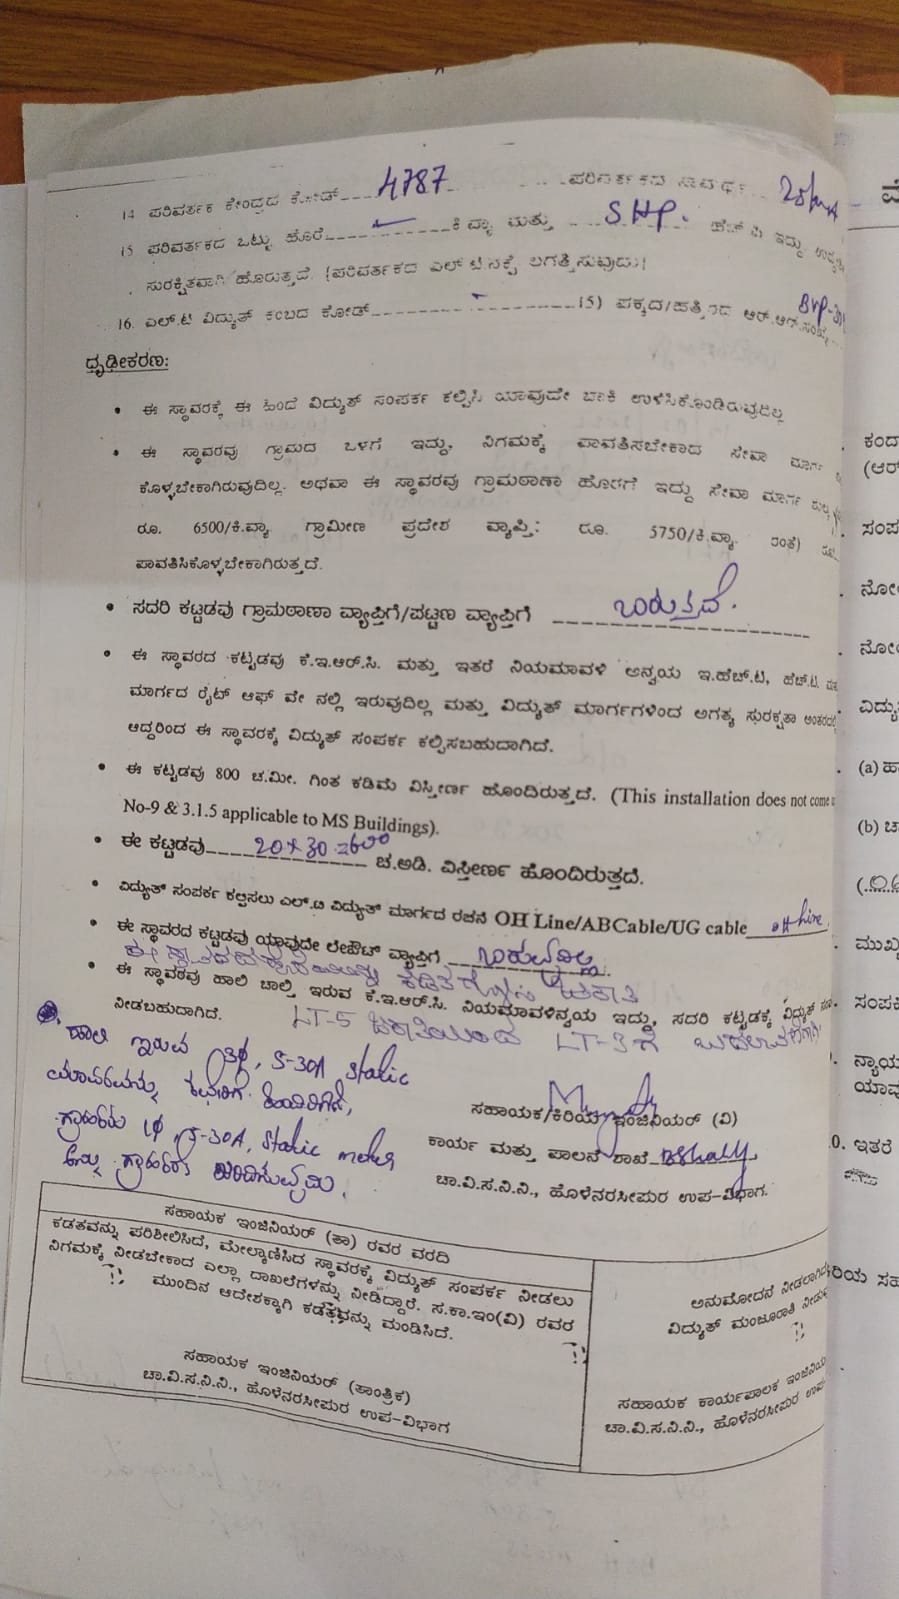 14 ಪರಿವರ್ತಕ ಕೇಂದ್ರದ ಕೋಡ್ 4787 ಪರಿವರ್ತಕದ ಸಾಮರ್ಥ್ಯ
15 ಪರಿವರ್ತಕದ ಒಟ್ಟು ಹೊರೆ ಕಿ.ವ್ಯಾ ಮತ್ತು 5HP. ಹೆಚ್.ಪಿ ಇದ್ದು
ಸುರಕ್ಷಿತವಾಗಿ ಹೊರುತ್ತದೆ. (ಪರಿವರ್ತಕದ ಎಲ್ ಟಿ ನಕ್ಷೆ ಲಗತ್ತಿಸುವುದು)
16. ಎಲ್.ಟಿ ವಿದ್ಯುತ್ ಕಂಬದ ಕೋಡ್ - 15) ಪಕ್ಕದ/ಹತ್ತಿರದ ಆರ್.ಆರ್.ಸಂಖ್ಯೆ
ಧೃಢೀಕರಣ:
• ಈ ಸ್ಥಾವರಕ್ಕೆ ಈ ಹಿಂದೆ ವಿದ್ಯುತ್ ಸಂಪರ್ಕ ಕಲ್ಪಿಸಿ ಯಾವುದೇ ಬಾಕಿ ಉಳಿಸಿಕೊಂಡಿರುವುದಿಲ್ಲ
• ಈ ಸ್ಥಾವರವು ಗ್ರಾಮದ ಒಳಗೆ ಇದ್ದು, ನಿಗಮಕ್ಕೆ ಪಾವತಿಸಬೇಕಾದ ಸೇವಾ ಮಾರ್ಗ
ಕೊಳ್ಳಬೇಕಾಗಿರುವುದಿಲ್ಲ. ಅಥವಾ ಈ ಸ್ಥಾವರವು ಗ್ರಾಮಠಾಣಾ ಹೊರಗೆ ಇದ್ದು ಸೇವಾ ಮಾರ್ಗ
ರೂ. 6500/ಕಿ.ವ್ಯಾ ಗ್ರಾಮೀಣ ಪ್ರದೇಶ ವ್ಯಾಪ್ತಿ: ರೂ. 5750/ಕಿ.ವ್ಯಾ. ರಂತೆ)
ಪಾವತಿಸಿಕೊಳ್ಳಬೇಕಾಗಿರುತ್ತದೆ.
• ಸದರಿ ಕಟ್ಟಡವು ಗ್ರಾಮಠಾಣಾ ವ್ಯಾಪ್ತಿಗೆ/ಪಟ್ಟಣ ವ್ಯಾಪ್ತಿಗೆ ಬರುತ್ತದೆ.
• ಈ ಸ್ಥಾವರದ ಕಟ್ಟಡವು ಕೆ.ಇ.ಆರ್.ಸಿ. ಮತ್ತು ಇತರೆ ನಿಯಮಾವಳಿ ಅನ್ವಯ ಇ.ಹೆಚ್.ಟಿ, ಹೆಚ್.ಟಿ.
ಮಾರ್ಗದ ರೈಟ್ ಆಫ್ ವೇ ನಲ್ಲಿ ಇರುವುದಿಲ್ಲ ಮತ್ತು ವಿದ್ಯುತ್ ಮಾರ್ಗಗಳಿಂದ ಅಗತ್ಯ ಸುರಕ್ಷತಾ
ಆದ್ದರಿಂದ ಈ ಸ್ಥಾವರಕ್ಕೆ ವಿದ್ಯುತ್ ಸಂಪರ್ಕ ಕಲ್ಪಿಸಬಹುದಾಗಿದೆ.
• ಈ ಕಟ್ಟಡವು 800 ಚ.ಮೀ. ಗಿಂತ ಕಡಿಮೆ ವಿಸ್ತೀರ್ಣ ಹೊಂದಿರುತ್ತದೆ. (This installation does not come
No-9 & 3.1.5 applicable to MS Buildings).
• ಈ ಕಟ್ಟಡವು 20×30=600 ಚ.ಅಡಿ. ವಿಸ್ತೀರ್ಣ ಹೊಂದಿರುತ್ತದೆ.
• ವಿದ್ಯುತ್ ಸಂಪರ್ಕ ಕಲ್ಪಿಸಲು ಎಲ್.ಟಿ ವಿದ್ಯುತ್ ಮಾರ್ಗದ ರಚನೆ OH Line/ABCable/UG cable
• ಈ ಸ್ಥಾವರದ ಕಟ್ಟಡವು ಯಾವುದೇ ಲೇಔಟ್ ವ್ಯಾಪ್ತಿಗೆ ಬರುವುದಿಲ್ಲ
• ಈ ಸ್ಥಾವರವು ಹಾಲಿ ಚಾಲ್ತಿ ಇರುವ ಕೆ.ಇ.ಆರ್.ಸಿ. ನಿಯಮಾವಳಿನ್ವಯ ಇದ್ದು, ಸದರಿ ಕಟ್ಟಡಕ್ಕೆ ವಿದ್ಯುತ್
ನೀಡಬಹುದಾಗಿದೆ. LT-5 ಜಕಾತಿಯಿಂದ LT-3 ಗೆ
ಹಾಲಿ ಇರುವ 3φ, 5-30A static
ಮಾಪಕವನ್ನು
ಗ್ರಾಹಕರು 1φ, 5-30A, static meter
ಸಹಾಯಕ/ಕಿರಿಯ ಇಂಜಿನಿಯರ್ (ವಿ)
ಕಾರ್ಯ ಮತ್ತು ಪಾಲನೆ ಶಾಖೆ
ಚಾ.ವಿ.ಸ.ನಿ.ನಿ., ಹೊಳೆನರಸೀಪುರ ಉಪ-ವಿಭಾಗ.
ಸಹಾಯಕ ಇಂಜಿನಿಯರ್ (ತಾ) ರವರ ವರದಿ
ಕಡತವನ್ನು ಪರಿಶೀಲಿಸಿದೆ, ಮೇಲ್ಕಾಣಿಸಿದ ಸ್ಥಾವರಕ್ಕೆ ವಿದ್ಯುತ್ ಸಂಪರ್ಕ ನೀಡಲು
ನಿಗಮಕ್ಕೆ ನೀಡಬೇಕಾದ ಎಲ್ಲಾ ದಾಖಲೆಗಳನ್ನು ನೀಡಿದ್ದಾರೆ. ಸ.ಕಾ.ಇಂ(ವಿ) ರವರ
ಮುಂದಿನ ಆದೇಶಕ್ಕಾಗಿ ಕಡತವನ್ನು ಮಂಡಿಸಿದೆ.
ಸಹಾಯಕ ಇಂಜಿನಿಯರ್ (ತಾಂತ್ರಿಕ)
ಚಾ.ವಿ.ಸ.ನಿ.ನಿ., ಹೊಳೆನರಸೀಪುರ ಉಪ-ವಿಭಾಗ
ಅನುಮೋದನೆ
ವಿದ್ಯುತ್ ಮಂಜೂರಾತಿ
ಸಹಾಯಕ ಕಾರ್ಯಪಾಲಕ
ಚಾ.ವಿ.ಸ.ನಿ.ನಿ., ಹೊಳೆನರಸೀಪುರ
(a)
(b)
0. ಇತರೆ